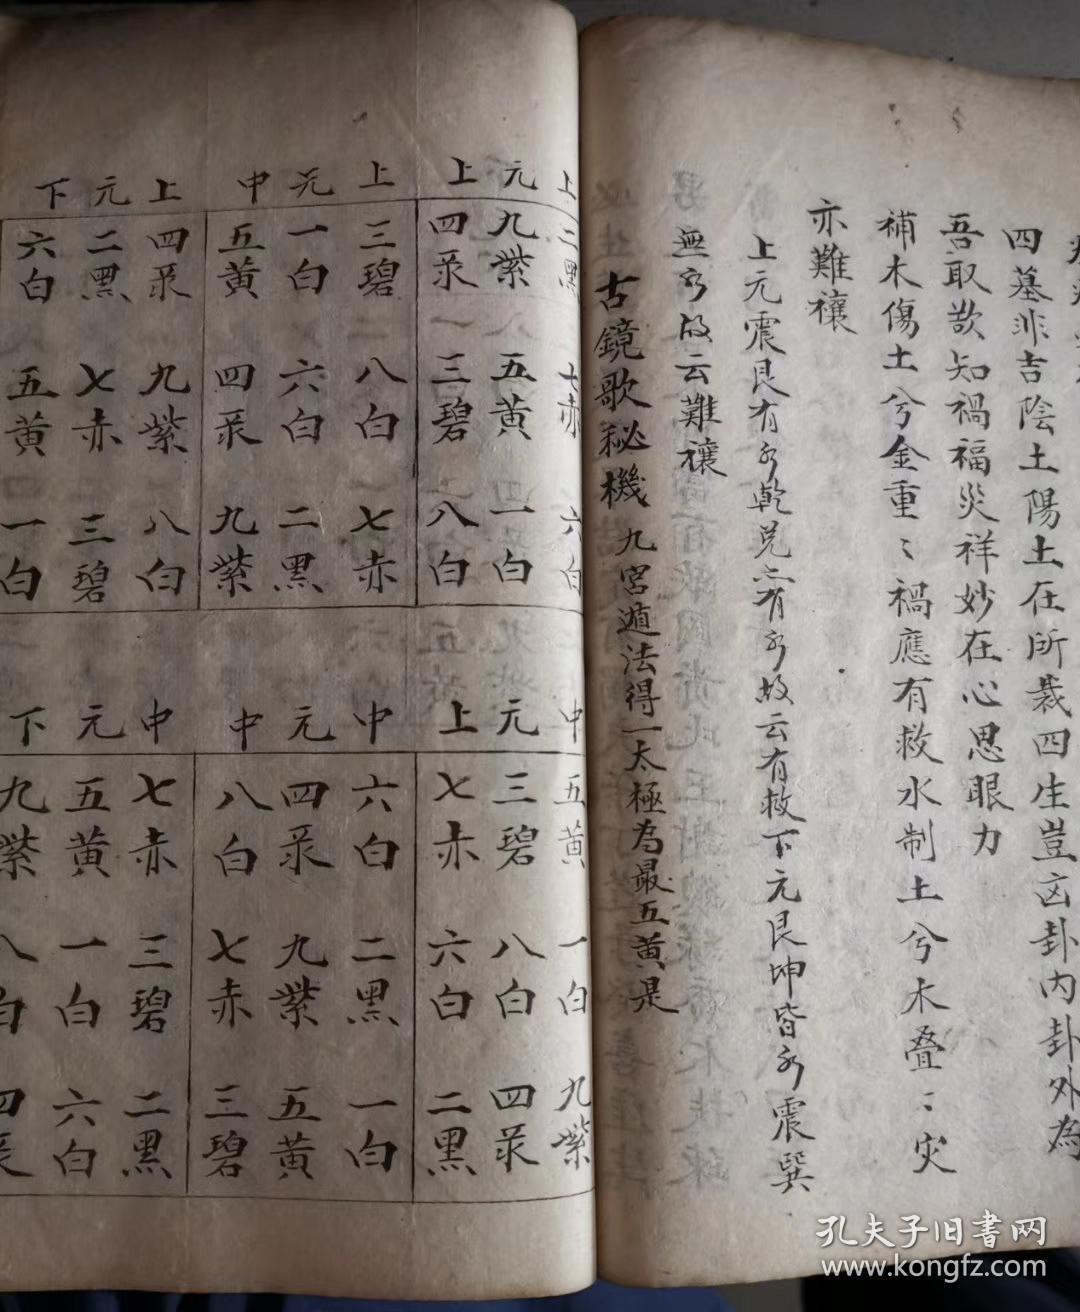 四墓非吉陰土陽土在所裁四生豈凶卦内卦外為
吾取欲知禍福災祥妙在心思眼力
補木傷土兮金重〻禍應有救水制土兮木叠〻灾
亦難禳
上元震艮有水乾兑亦有水故云有救下元艮坤皆水震巽
無水故云難禳
古鏡歌秘機 九宮遁法得一太極為最五黄是
上 元 上
二黑 九紫 四菉
七赤 五黄 三碧
六白 一白 八白
上 元 中
三碧 一白 五黄
八白 六白 四菉
七赤 二黑 九紫
上 元 下
四菉 二黑 六白
九紫 七赤 五黄
八白 三碧 一白
中 元 上
五黄 三碧 七赤
一白 八白 六白
九紫 四菉 二黑
中 元 中
六白 四菉 八白
二黑 九紫 七赤
一白 五黄 三碧
中 元 下
七赤 五黄 九紫
三碧 一白 八白
二黑 六白 四菉
孔夫子旧書网
www.kongfz.com